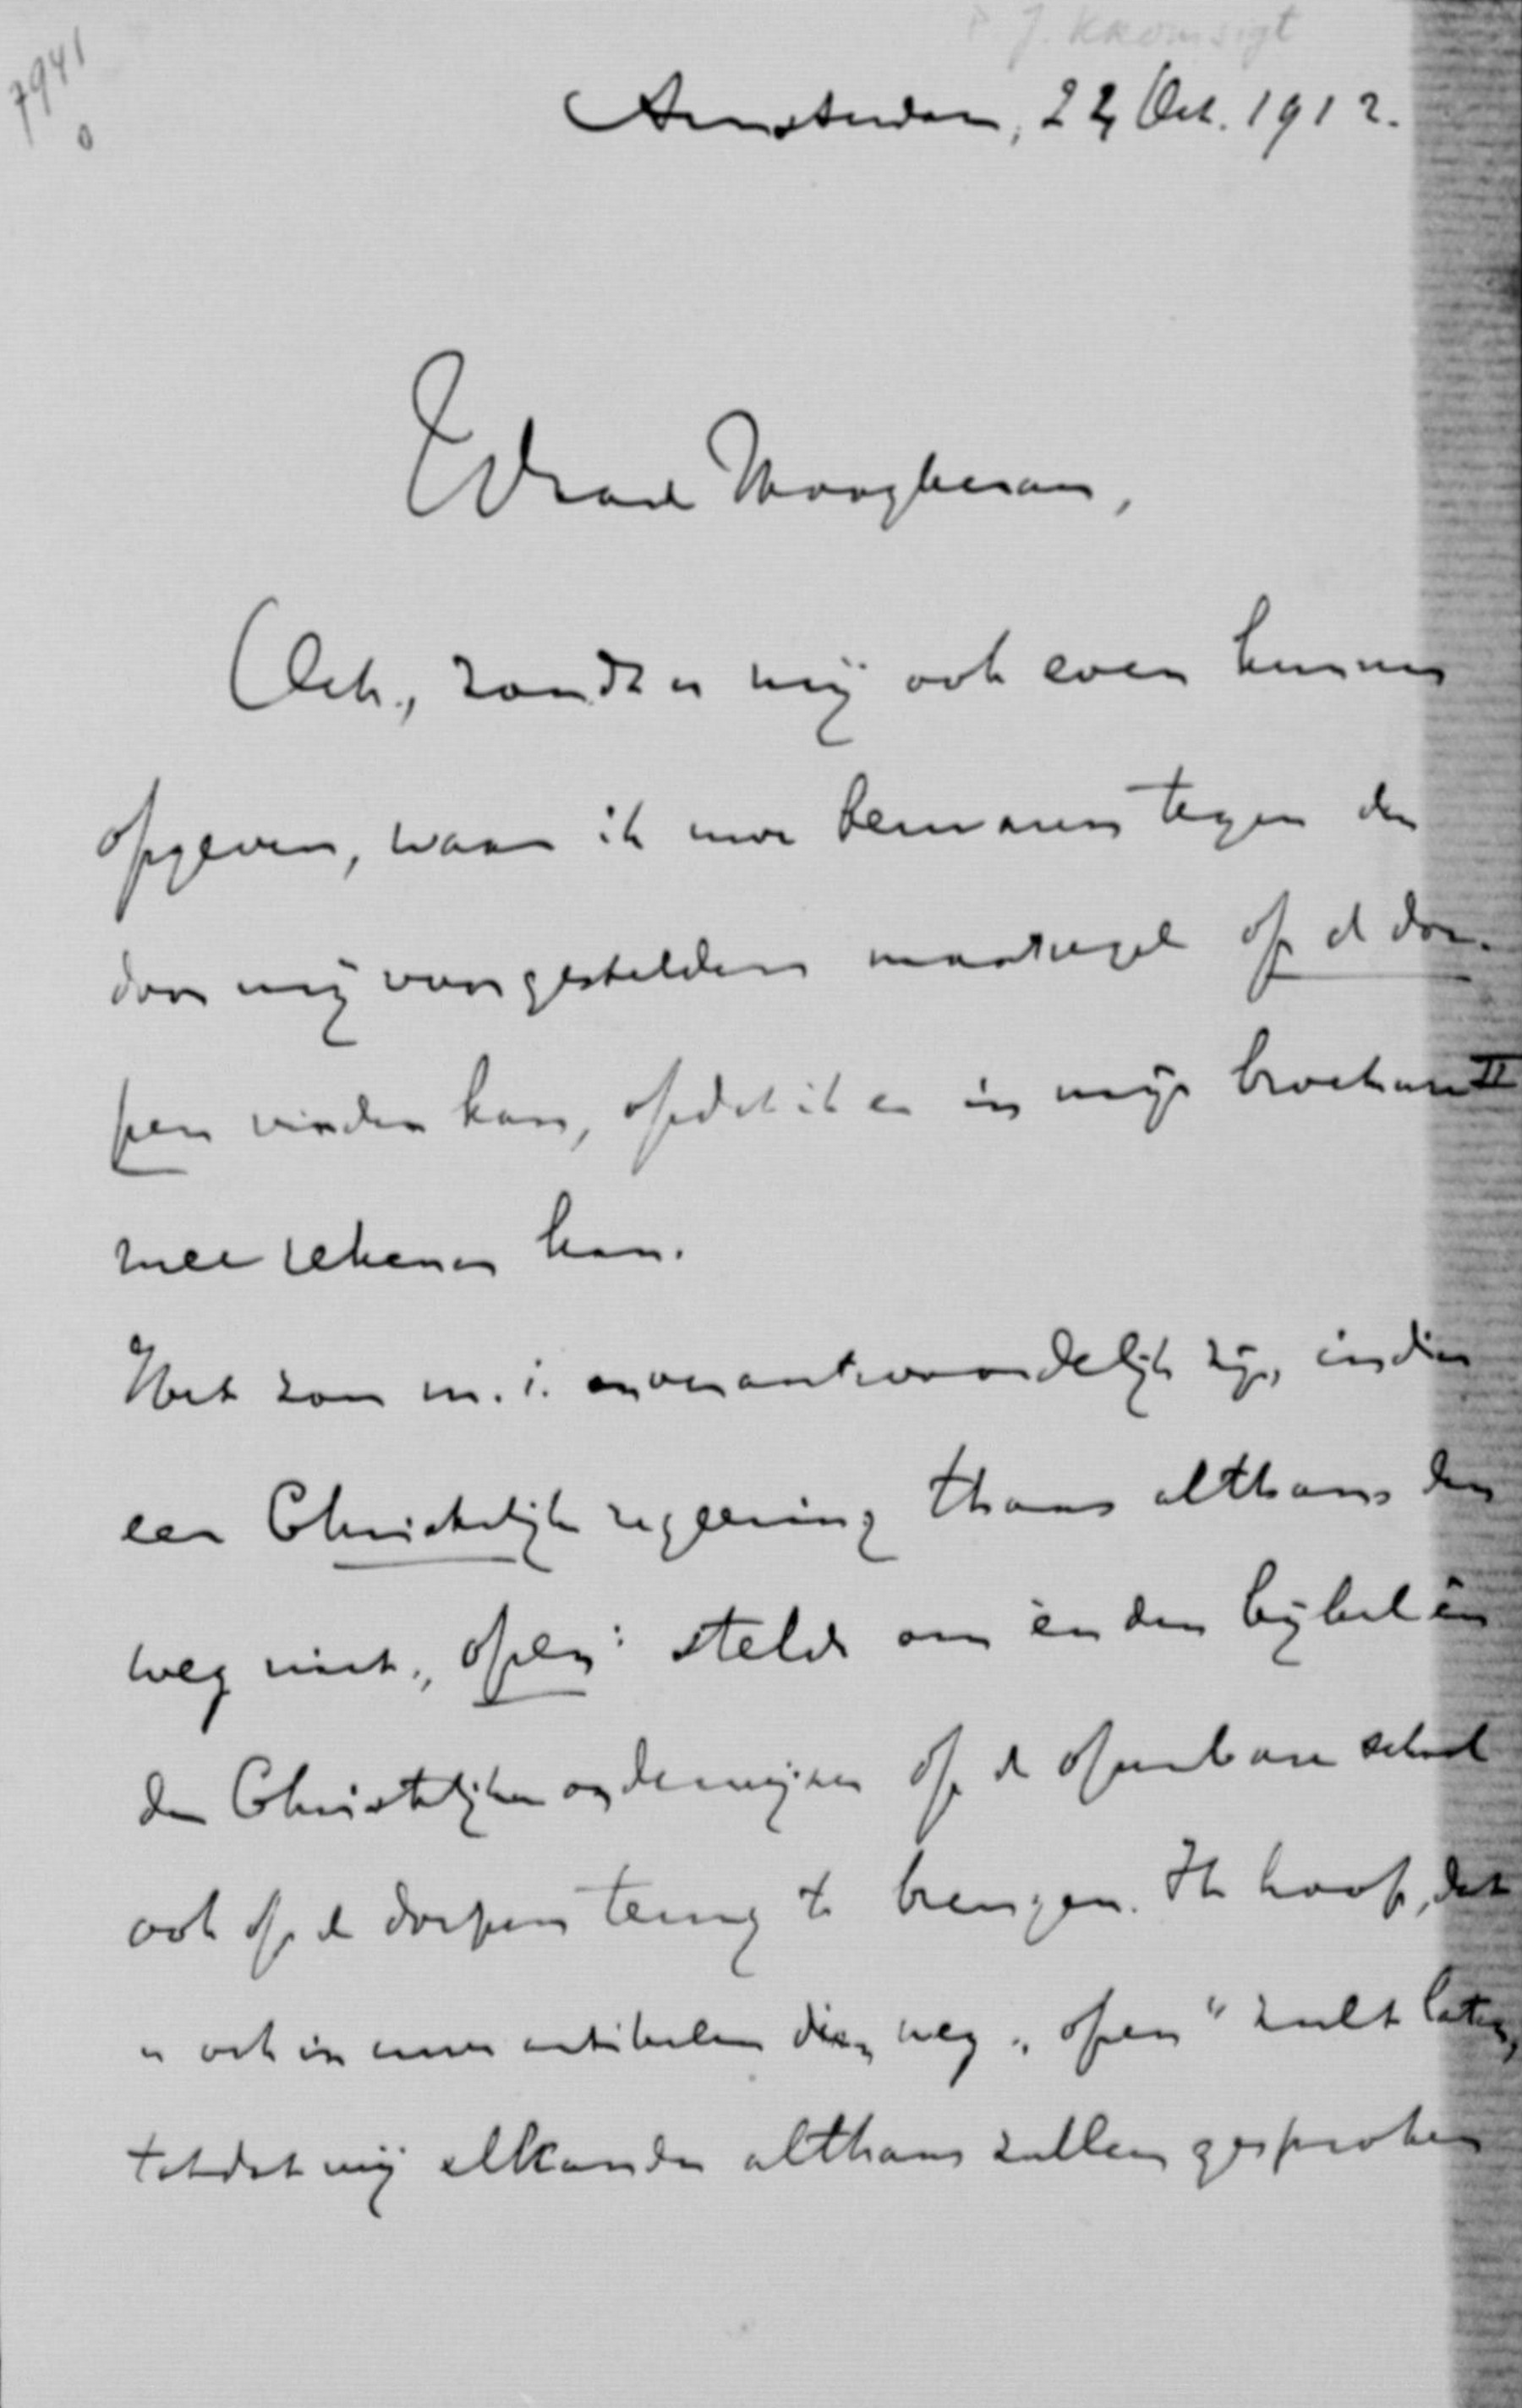 P. J. Kromsigt
7941
0
Amsterdam, 22 Oct. 1912.
WelEdel Hooggeb. heer,
Och, zoudt u mij ook even kunnen
opgeven, waar ik uwe bezwaren tegen den
door mij voorgestelden maatregel op de dor-
pen vinden kan, opdat ik er in mijn brochure II
mee rekenen kan.
Het zou m. i. onverantwoordelijk zijn, indien
een Christelijke regeering thans althans den
weg niet „open" stelde om èn den bijbel èn
den Christelijken onderwijzer op de openbare school
ook op de dorpen terug te brengen. Ik hoop, dat
u ook in uwe artikelen dien weg „open" zult laten,
totdat wij elkander althans zullen gesproken